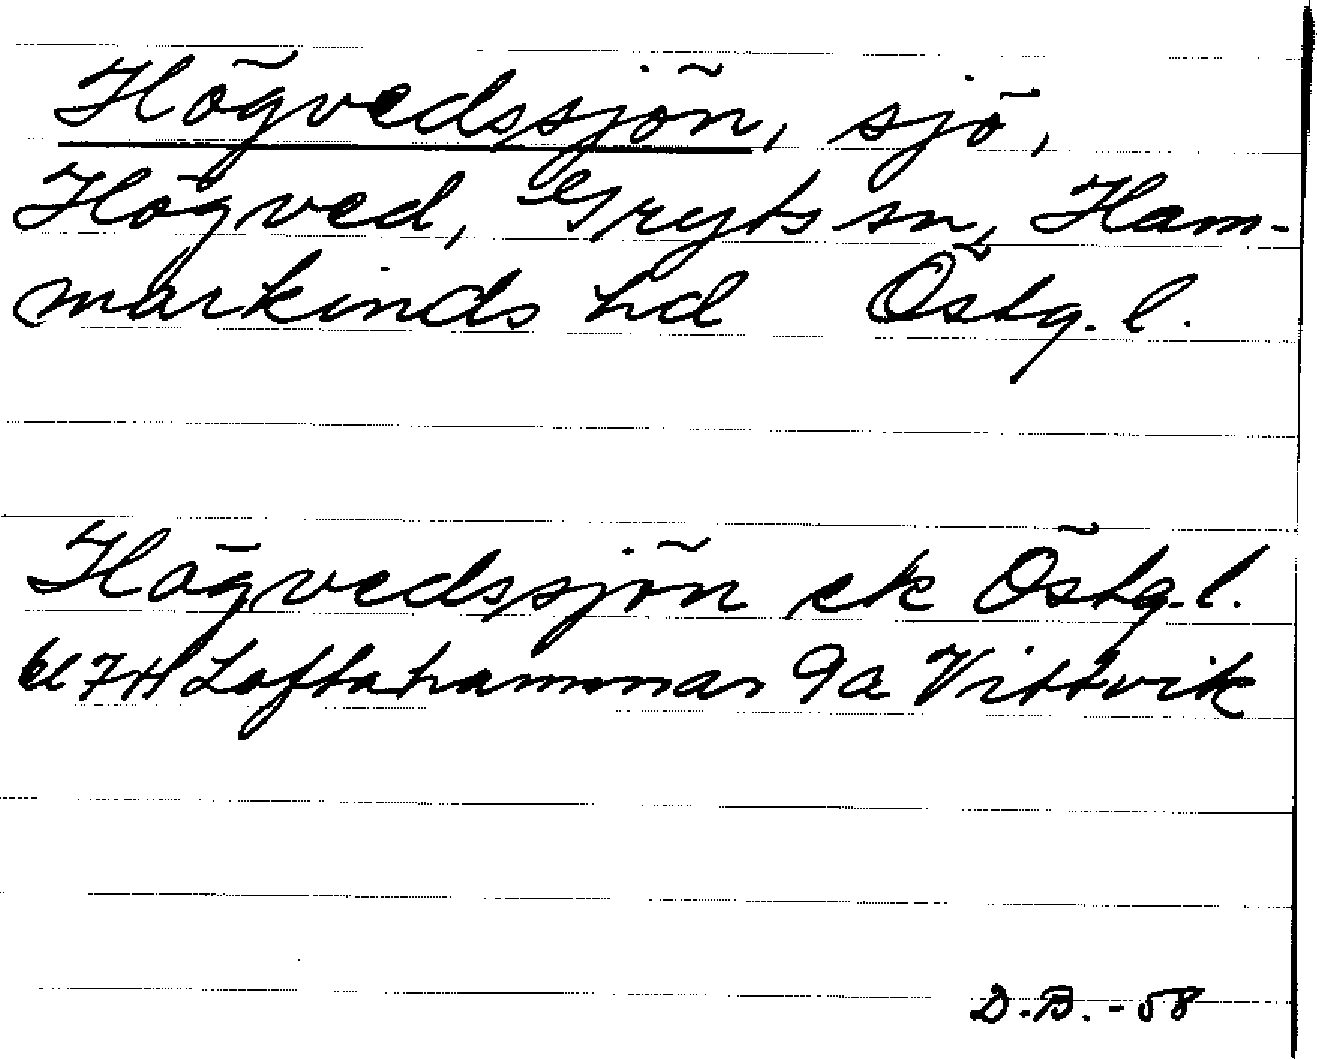 Högvedssjön, sjö,
Högved, Gryts sn, Ham-
markinds hd Östg. l.
Högvedssjön ek Östg. l.
bl 7H Loftahammar 9a Vittvik
D.B. -58